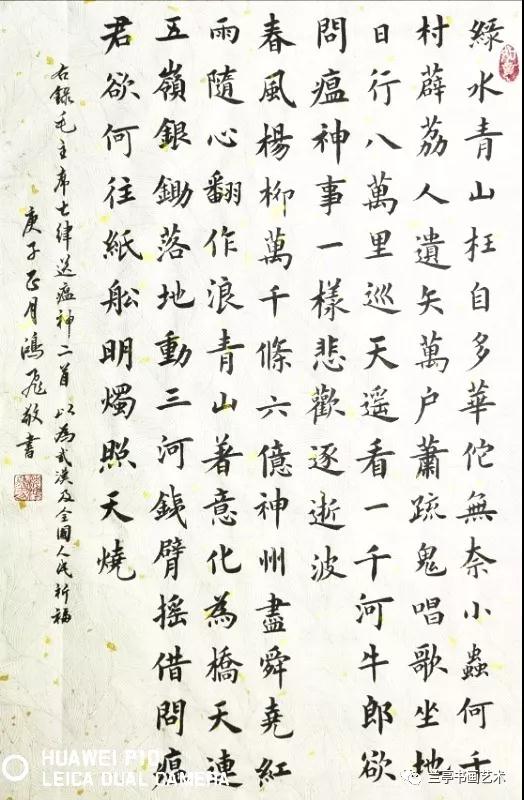 綠水青山枉自多華佗無奈小蟲何千
村薜荔人遺矢萬户蕭疏鬼唱歌坐地
日行八萬里巡天遥看一千河牛郎欲
問瘟神事一樣悲歡逐逝波
春風楊柳萬千條六億神州盡舜堯紅
雨隨心翻作浪青山著意化為橋天連
五嶺銀鋤落地動三河銕臂摇借問瘟
君欲何往紙舩明燭照天燒
右錄毛主席七律送瘟神二首 以為武漢及全國人民祈福
庚子正月鴻飛敬書
HUAWEI P10
LEICA DUAL CAMERA
兰亭书画艺术